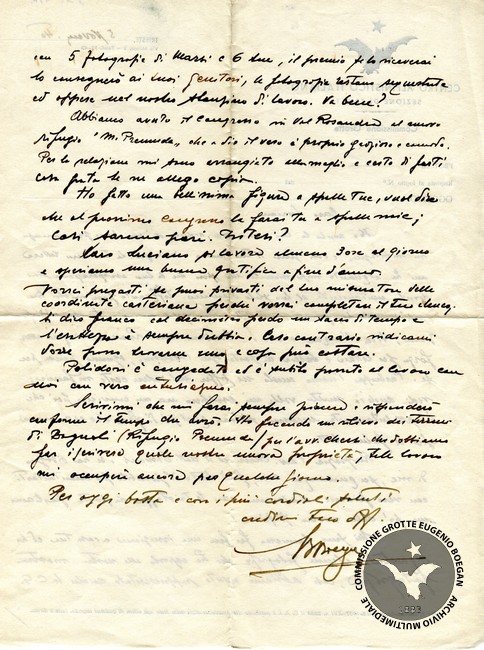 con 5 fotografie di Marzi e 6 tue, il premio se lo riceverai
lo consegnerò ai tuoi genitori, le fotografie restano sequestrate
ed appese nel nostro stanzino di lavoro. Va bene?
Abbiamo avuto il Congresso in Val Rosandra al nuovo
rifugio "M. Premuda", che a dir il vero è proprio grazioso e comodo.
Per la relazione mi sono arrangiato alla meglio e
cosa fatta te ne allego copia.
Ho fatto una bellissima figura a spalle tue, vuol dire
che al prossimo congresso la farai tu a spalle mie;
così saremo pari. Intesi?
Caro Luciano si lavora almeno 3 ore al giorno
e speriamo una buona gratifica a fine d'anno.
Vorrei pregarti se puoi privarti del tuo misuratore delle
coordinate cartesiane perché vorrei completare il tuo
ti dico franco col decimetro perdo un sacco di tempo e
l'esattezza è sempre dubbia. Caso contrario indicami
dove posso trovarne uno e cosa può costare.
Polidori è congedato ed è subito pronto al lavoro con
noi con vero entusiasmo.
Scrivimi che mi farai sempre piacere e risponderò
conforme il tempo che avrò. Sto facendo un rilievo dei terreni
di Bagnoli (Rifugio Premuda) per l'avv. Chersi che dobbiamo
far iscrivere quale nostra nuova proprietà, tale lavoro
mi occuperà ancora per qualche giorno.
Per oggi basta e con i più cordiali saluti
credimi tuo aff.
BBoegan
COMMISSIONE GROTTE EUGENIO BOEGAN
ARCHIVIO MULTIMEDIALE
1883